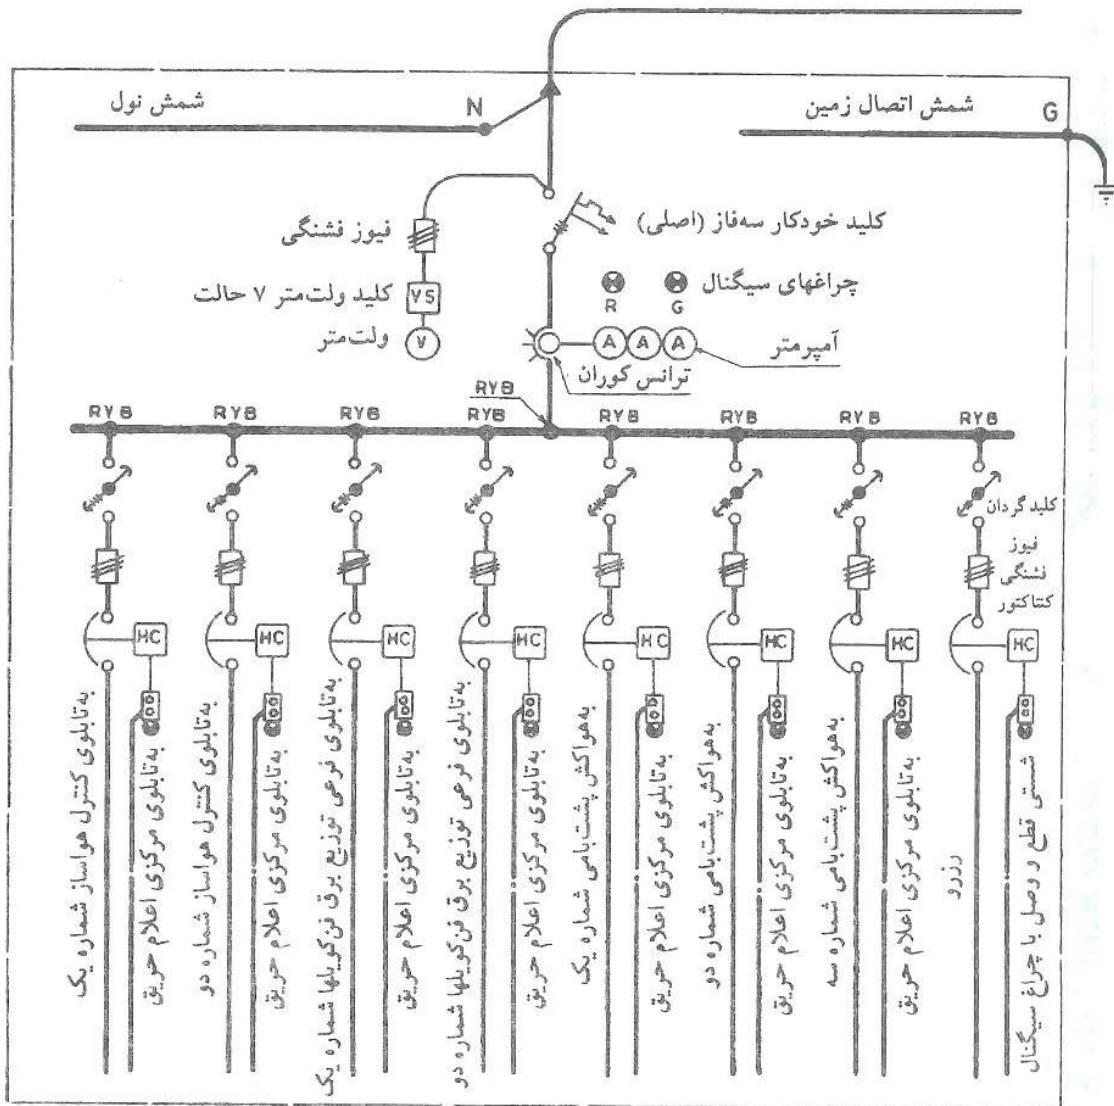 شمش نول
N
شمش اتصال زمین
G
فیوز فشنگی
کلید خودکار سه‌فاز (اصلی)
کلید ولت‌متر ۷ حالت
VS
چراغهای سیگنال
R
G
ولت‌متر
V
A
A
A
آمپرمتر
ترانس کوران
RYB
RYB
RYB
RYB
RYB
RYB
RYB
RYB
RYB
کلید گردان
فیوز
فشنگی
کنتاکتور
HC
HC
HC
HC
HC
HC
HC
HC
به‌تابلوی کنترل هواساز شماره یک
به‌تابلوی مرکزی اعلام حریق
به‌تابلوی کنترل هواساز شماره دو
به‌تابلوی مرکزی اعلام حریق
به‌تابلوی فرعی توزیع برق فن‌کویلها شماره یک
به‌تابلوی مرکزی اعلام حریق
به‌تابلوی فرعی توزیع برق فن‌کویلها شماره دو
به‌تابلوی مرکزی اعلام حریق
به‌هواکش پشت‌بامی شماره یک
به‌تابلوی مرکزی اعلام حریق
به‌هواکش پشت‌بامی شماره دو
به‌تابلوی مرکزی اعلام حریق
به‌هواکش پشت‌بامی شماره سه
به‌تابلوی مرکزی اعلام حریق
رزرو
شستی قطع و وصل با چراغ سیگنال